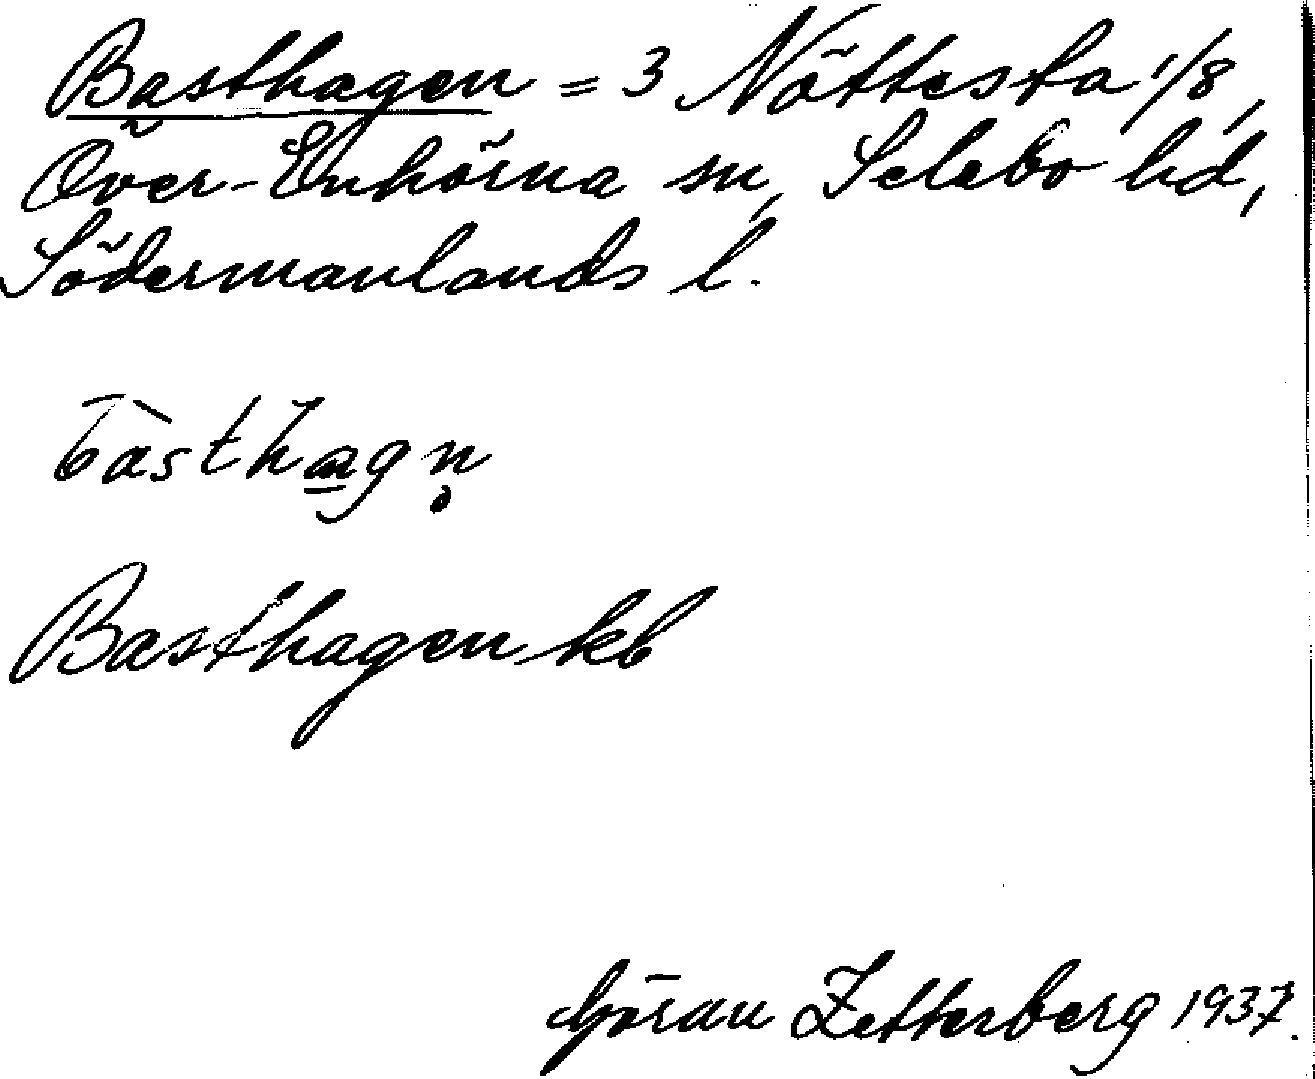 Basthagen = 3 Nöttesta 1/8,
Över-Enhörna sn, Selebo hd,
Södermanlands l.
bàsthagṇ
Basthagen kb
Göran Zetterberg 1937.